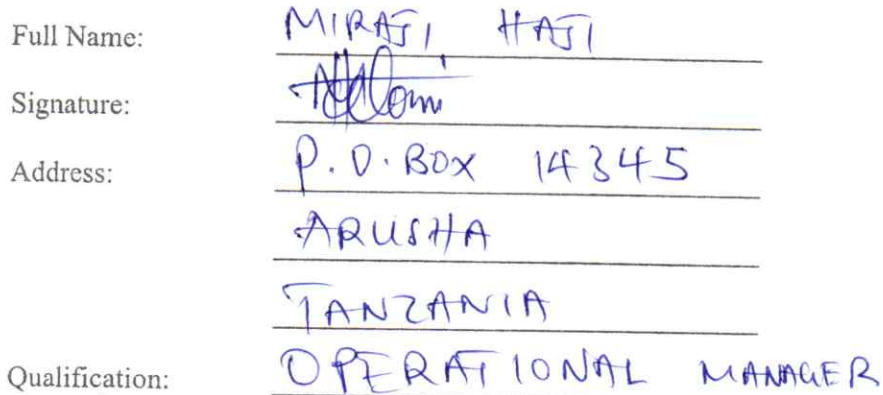 Full Name: MIRAJI, HAJI
Signature:
Address: P.O.BOX 14345
ARUSHA
TANZANIA
Qualification: OPERATIONAL MANAGER